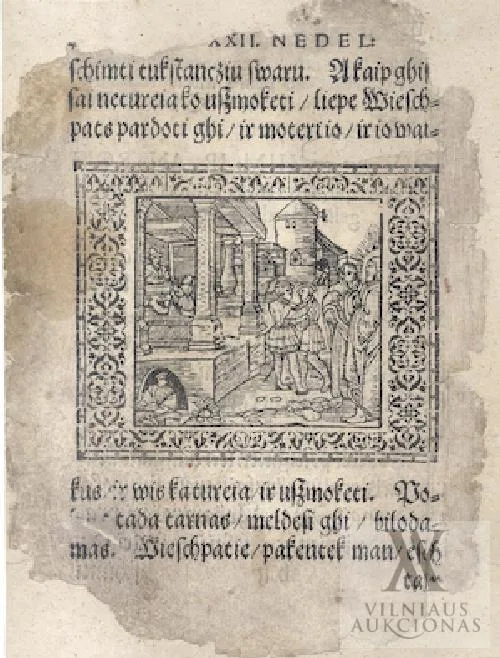 XXII. NEDEL:
schimti tukstancziu swaru. A kaip ghis
sai netureia ko uszmoketi / liepe Wiesch-
pats pardoti ghi / ir moteri io / ir io wai-
kus / ir wis ka tureia / ir uszmoketi. Po-
tada tarnas / meldesi ghi / biloda-
mas. Wieschpatie / pakentek man / esch
VILNIAUS
AUKCIONAS